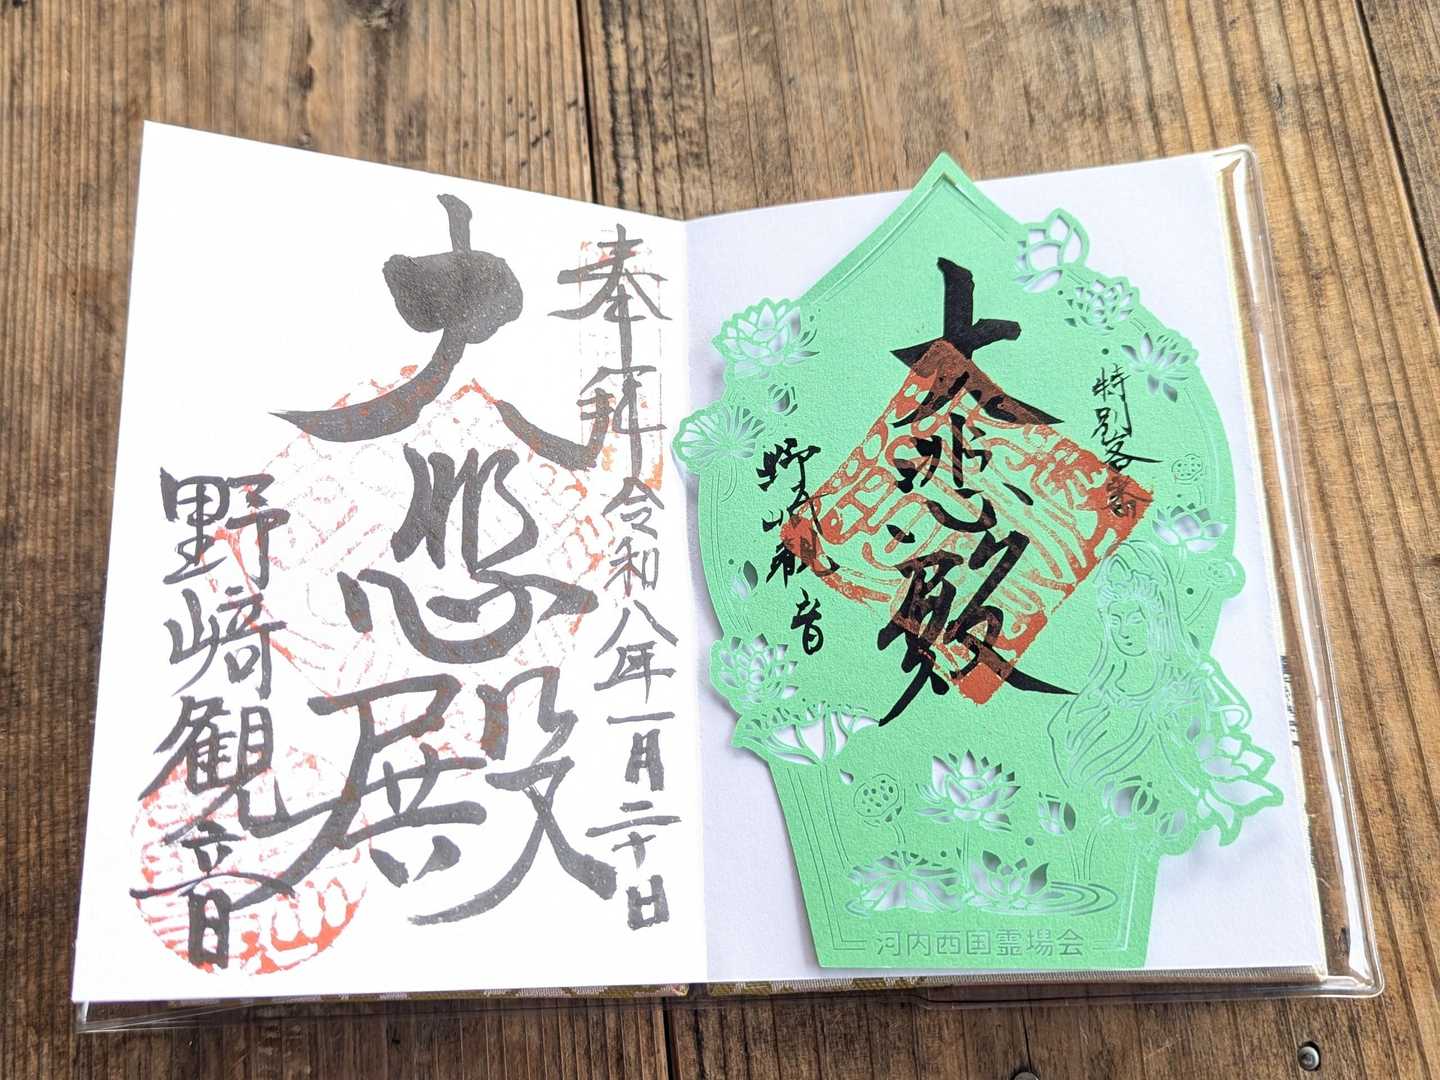 奉拝
令和八年一月二十日
大悲殿
野崎観音
特別客番
大悲殿
野崎観音
河内西国霊場会